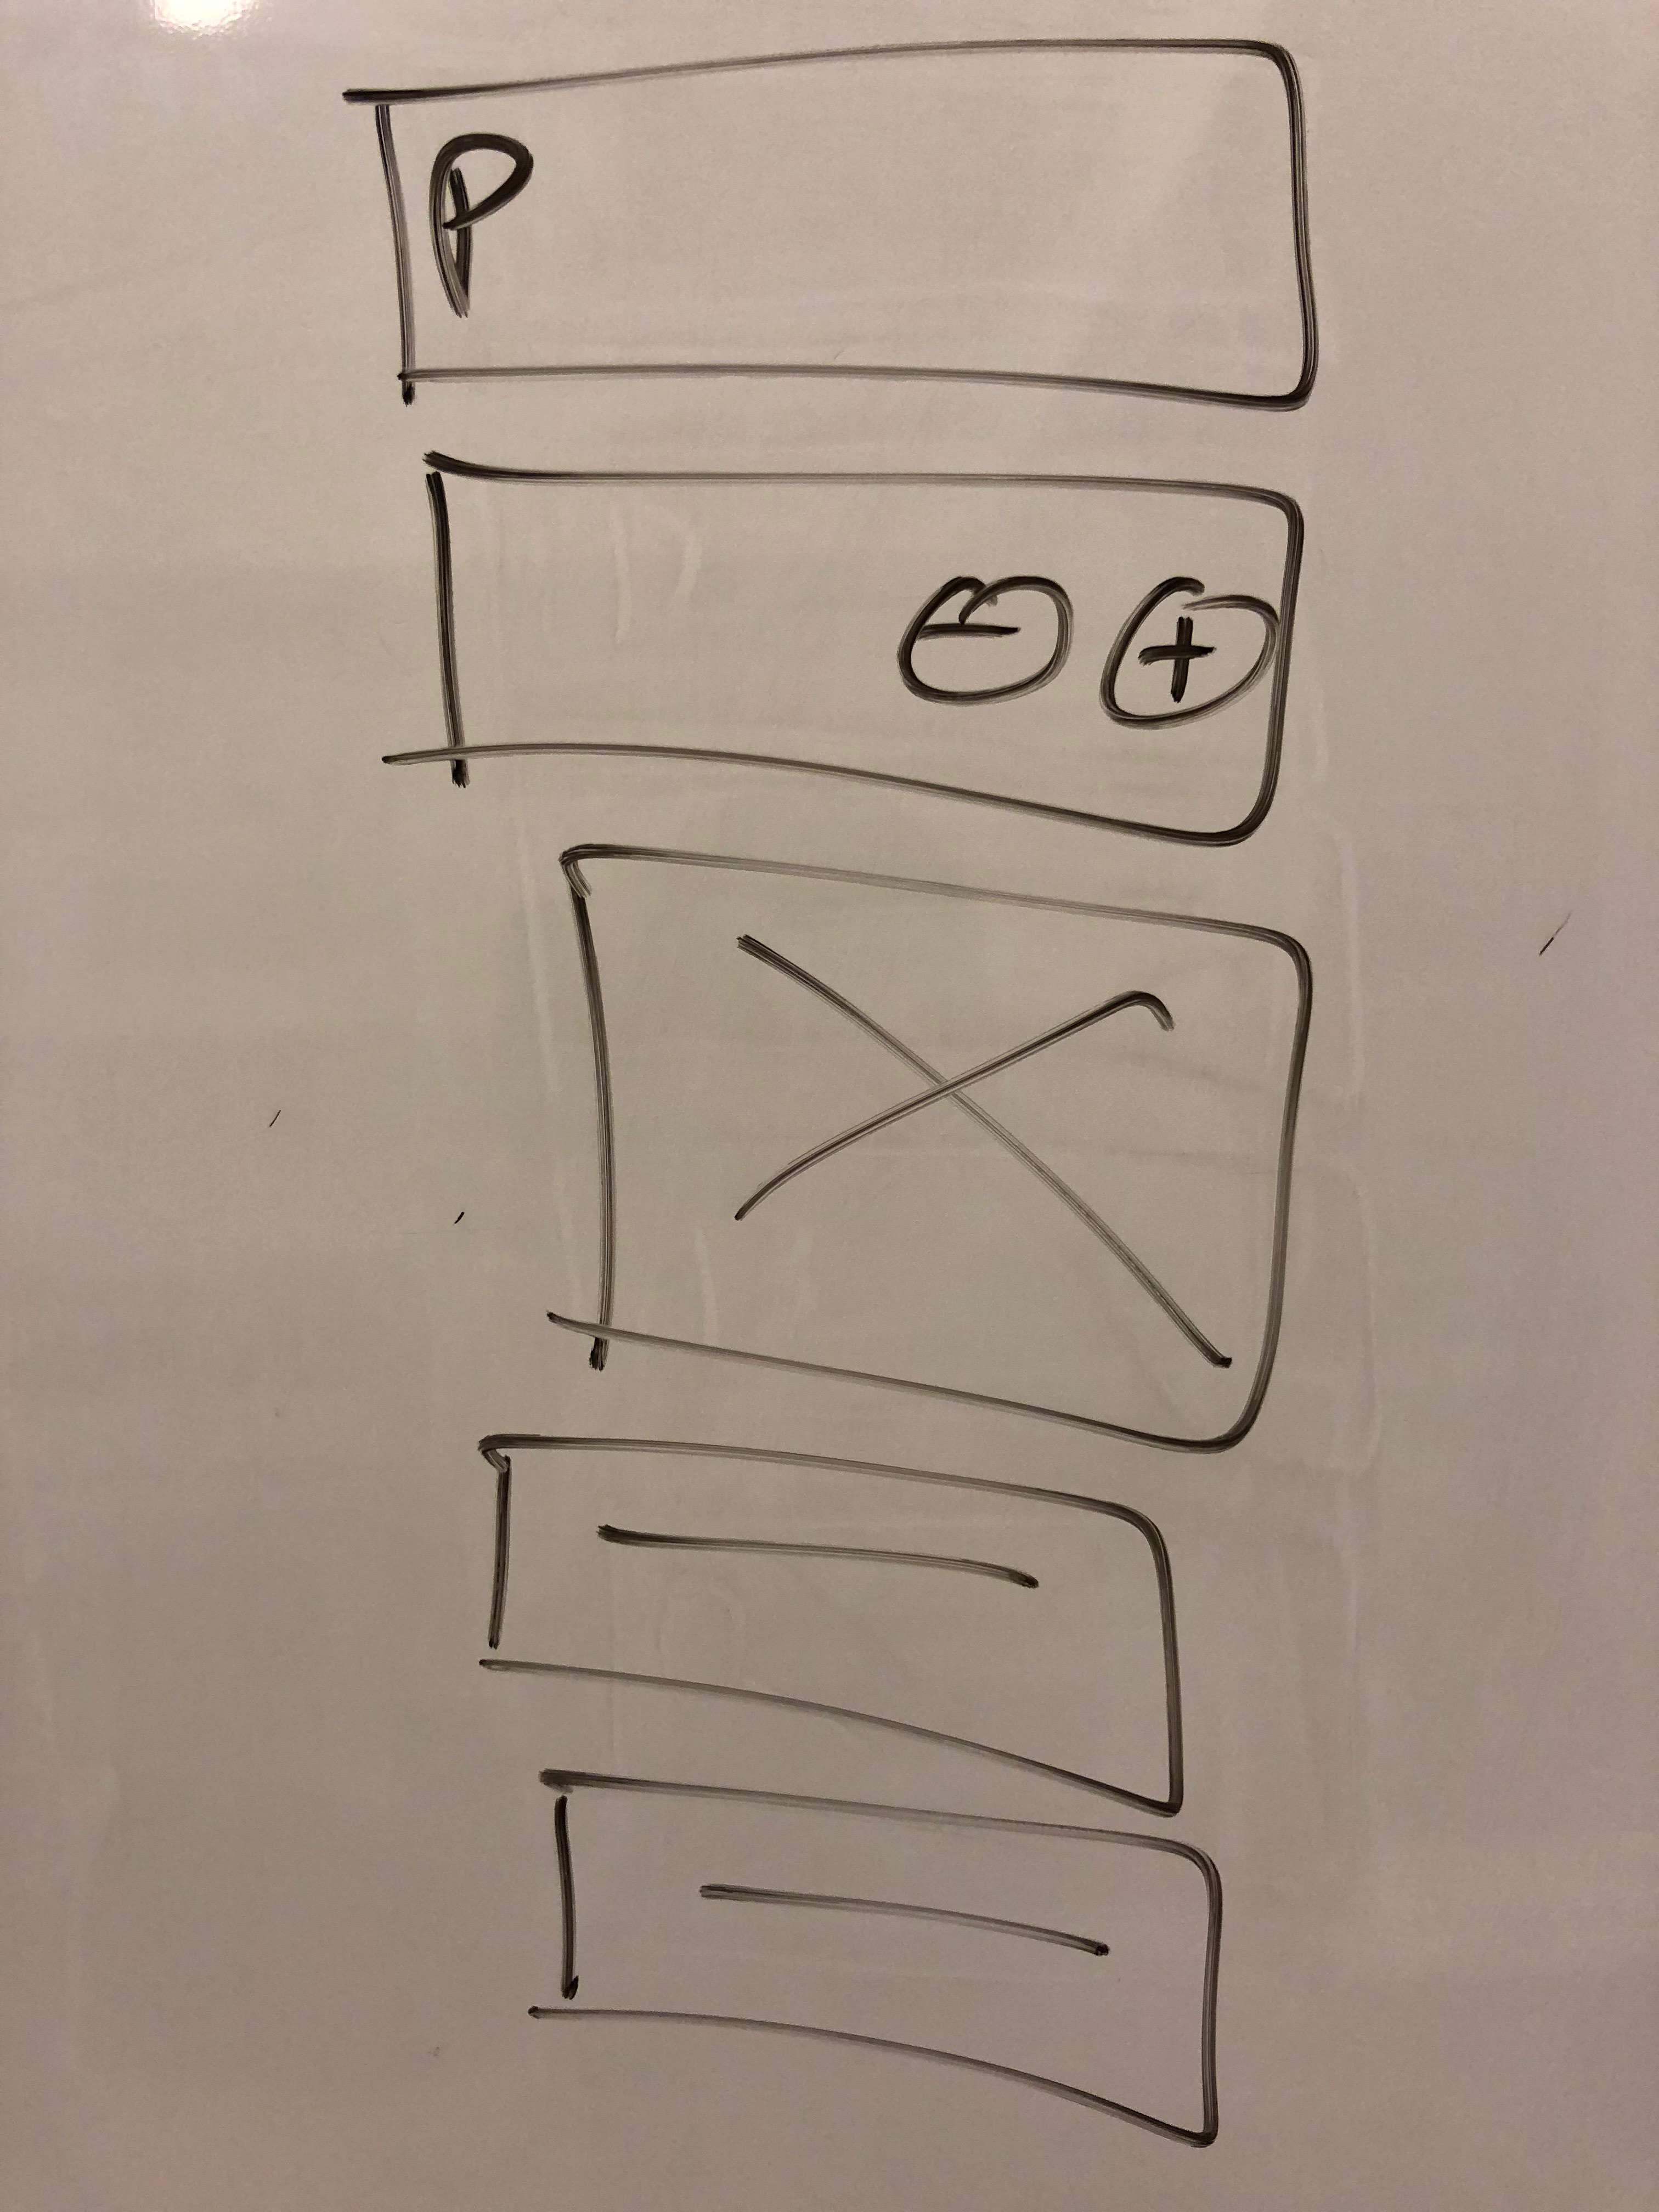 P
- +